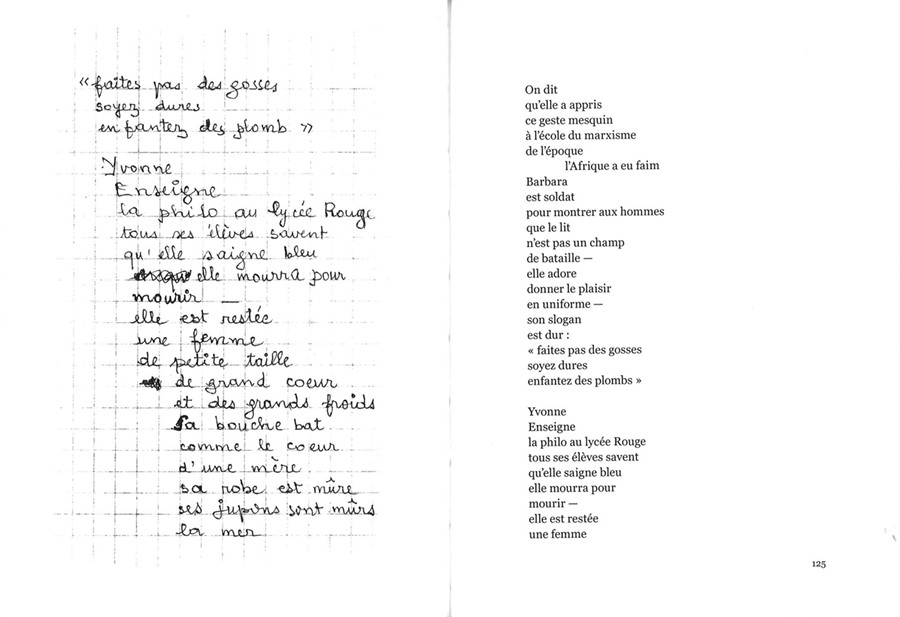 «faites pas des gosses
soyez dures
enfantez des plomb »
Yvonne
Enseigne
la philo au lycée Rouge
tous ses élèves savent
qu'elle saigne bleu
elle mourra pour
mourir —
elle est restée
une femme
de petite taille
de grand coeur
et des grands froids
sa bouche bat
comme le coeur
d'une mère
sa robe est mûre
ses jupons sont mûrs
la mer
On dit
qu'elle a appris
ce geste mesquin
à l'école du marxisme
de l'époque
l'Afrique a eu faim
Barbara
est soldat
pour montrer aux hommes
que le lit
n'est pas un champ
de bataille —
elle adore
donner le plaisir
en uniforme —
son slogan
est dur :
« faites pas des gosses
soyez dures
enfantez des plombs »
Yvonne
Enseigne
la philo au lycée Rouge
tous ses élèves savent
qu'elle saigne bleu
elle mourra pour
mourir —
elle est restée
une femme
125